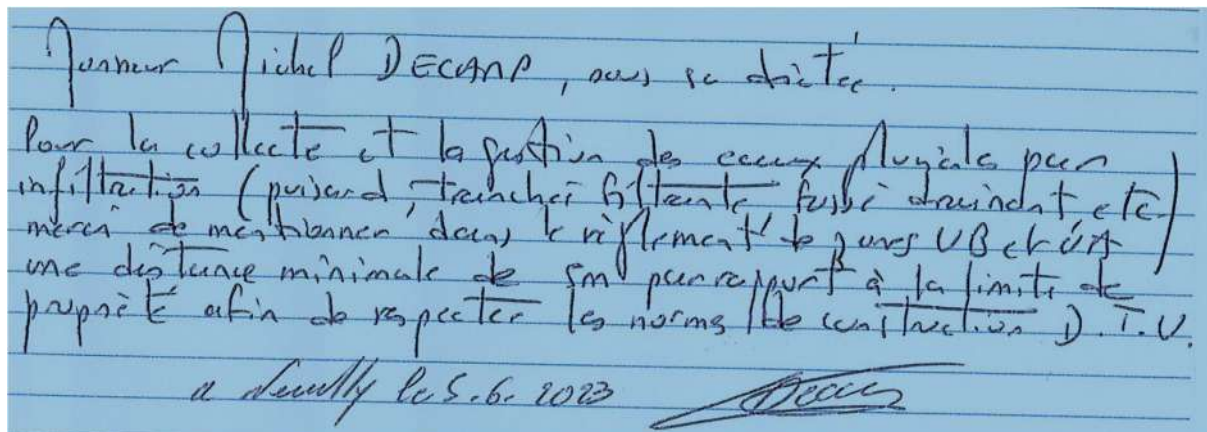 Monsieur Michel DECAMP, sous sa dictée.
Pour la collecte et la gestion des eaux pluviales par
infiltration (puisard, tranchée filtrante fossé draindant, etc)
merci de mentionner dans le règlement de zones UB et UA
une distance minimale de 5m par rapport à la limite de
propriété afin de respecter les normes de construction D.T.U.
a Neuilly le 5.6.2023